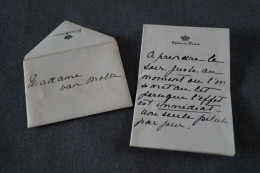 Madame
van Molle
A prendre le
soir juste au
moment où l'on
se met au lit
parceque l'effet
est immédiat
une seule pilule
par jour.